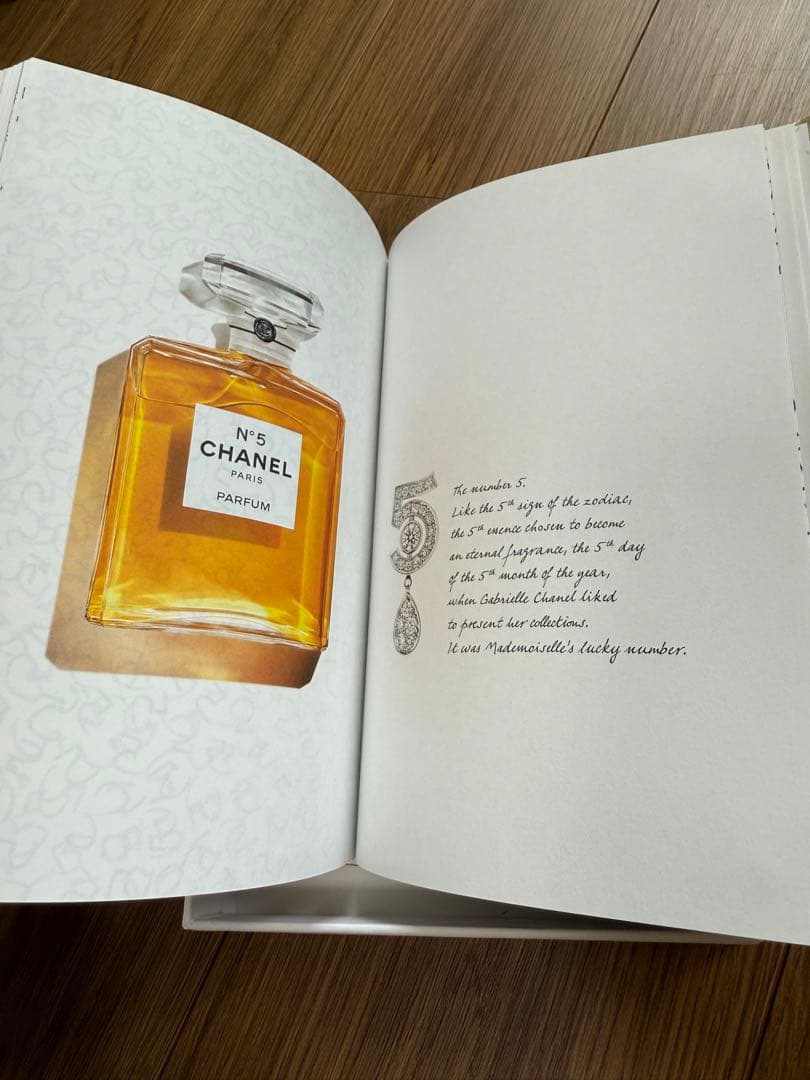 N°5
CHANEL
PARIS
PARFUM
5
The number 5.
Like the 5th sign of the zodiac,
the 5th essence chosen to become
an eternal fragrance, the 5th day
of the 5th month of the year,
when Gabrielle Chanel liked
to present her collections.
It was Mademoiselle's lucky number.